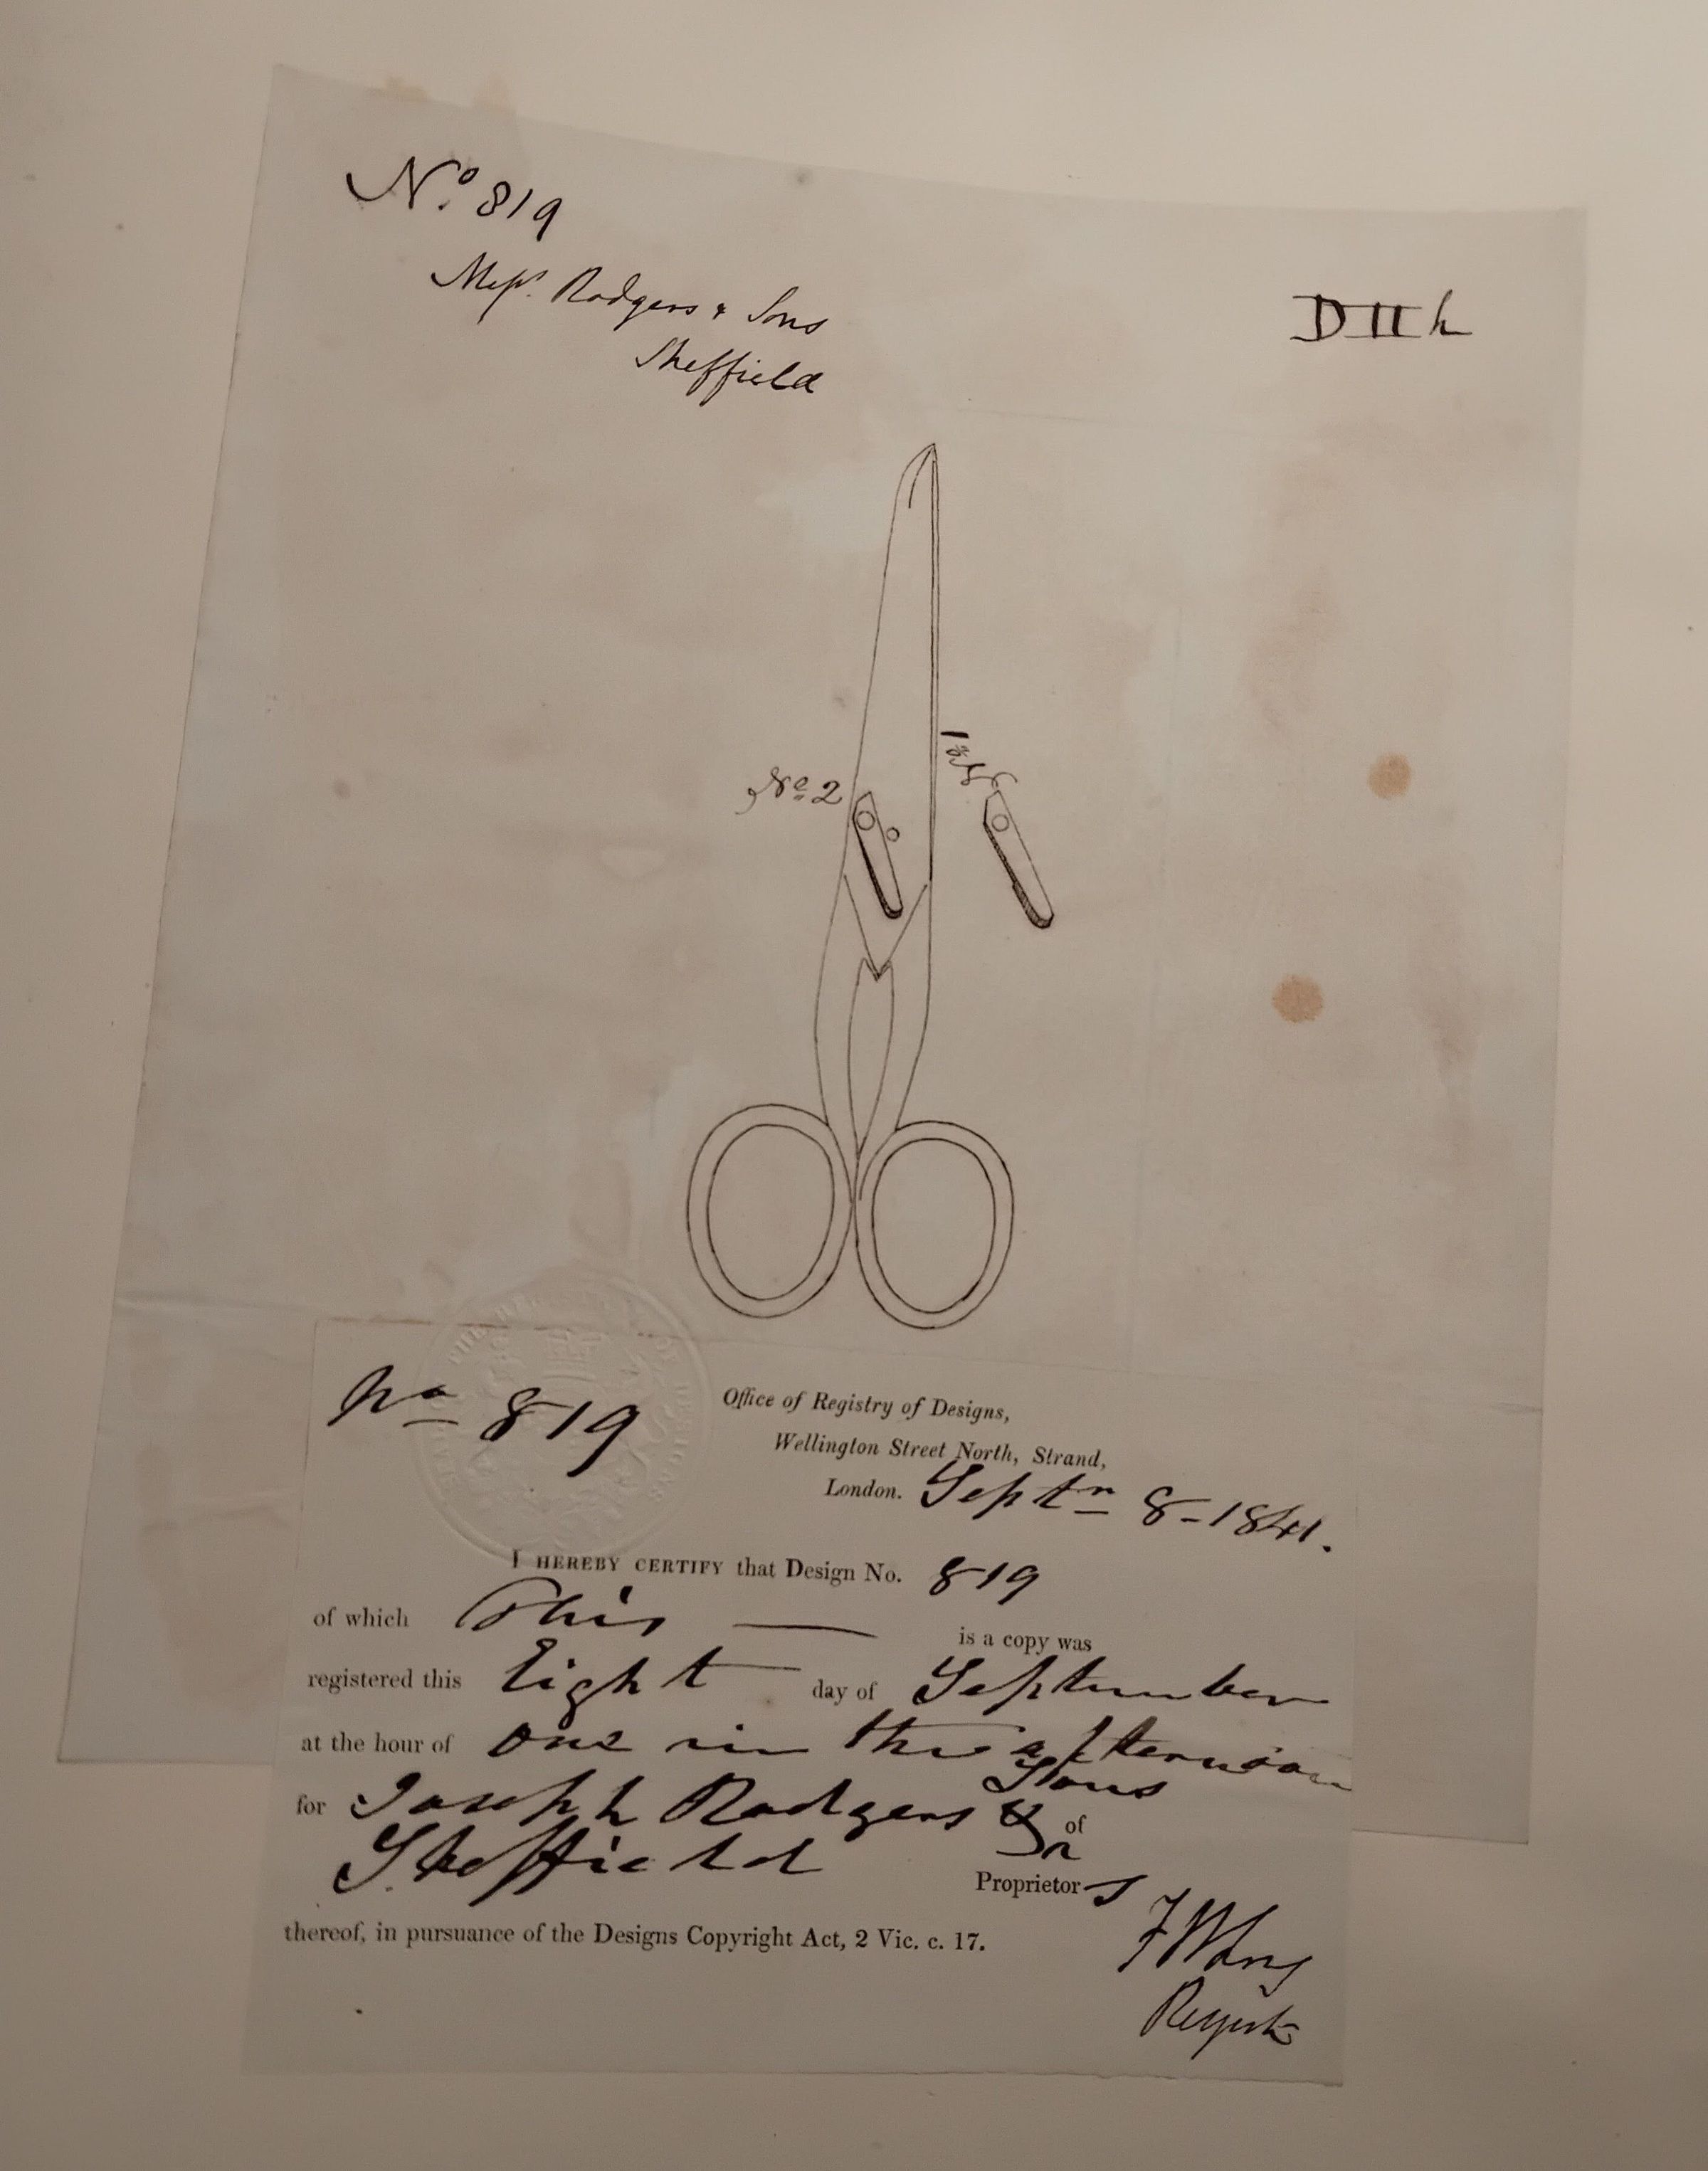 No. 819
Messrs. Rodgers & Sons
Sheffield
D II h
No. 1
No. 2
No 819
Office of Registry of Designs,
Wellington Street North, Strand,
London. Septr 8 - 1841.
I HEREBY CERTIFY that Design No. 819
of which This — is a copy was
registered this Eight — day of September
at the hour of one in the afternoon
for Joseph Rodgers & Sons of
Sheffield
Proprietors
thereof, in pursuance of the Designs Copyright Act, 2 Vic. c. 17.
F W Long